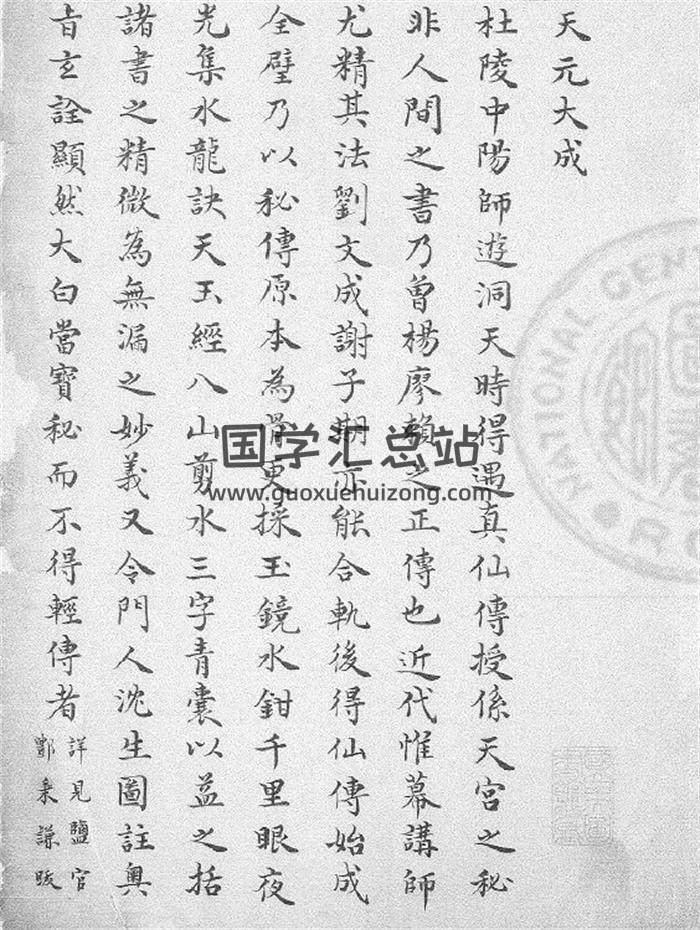 天元大成
杜陵中陽師遊洞天時得遇真仙傳授係天宮之秘
非人間之書乃曾楊廖賴之正傳也近代惟幕講師
尤精其法劉文成謝子期亦能合軌後得仙傳始成
全璧乃以秘傳原本為骨更採玉鏡水鉗千里眼夜
光集水龍訣天玉經八山剪水三字青囊以益之括
諸書之精微為無漏之妙義又令門人沈生圖註奥
旨玄詮顯然大白當寶秘而不得輕傳者
詳見鹽官
鄞秉謙跋
国学汇总站
www.guoxuehuizong.com
NATIONAL GEN